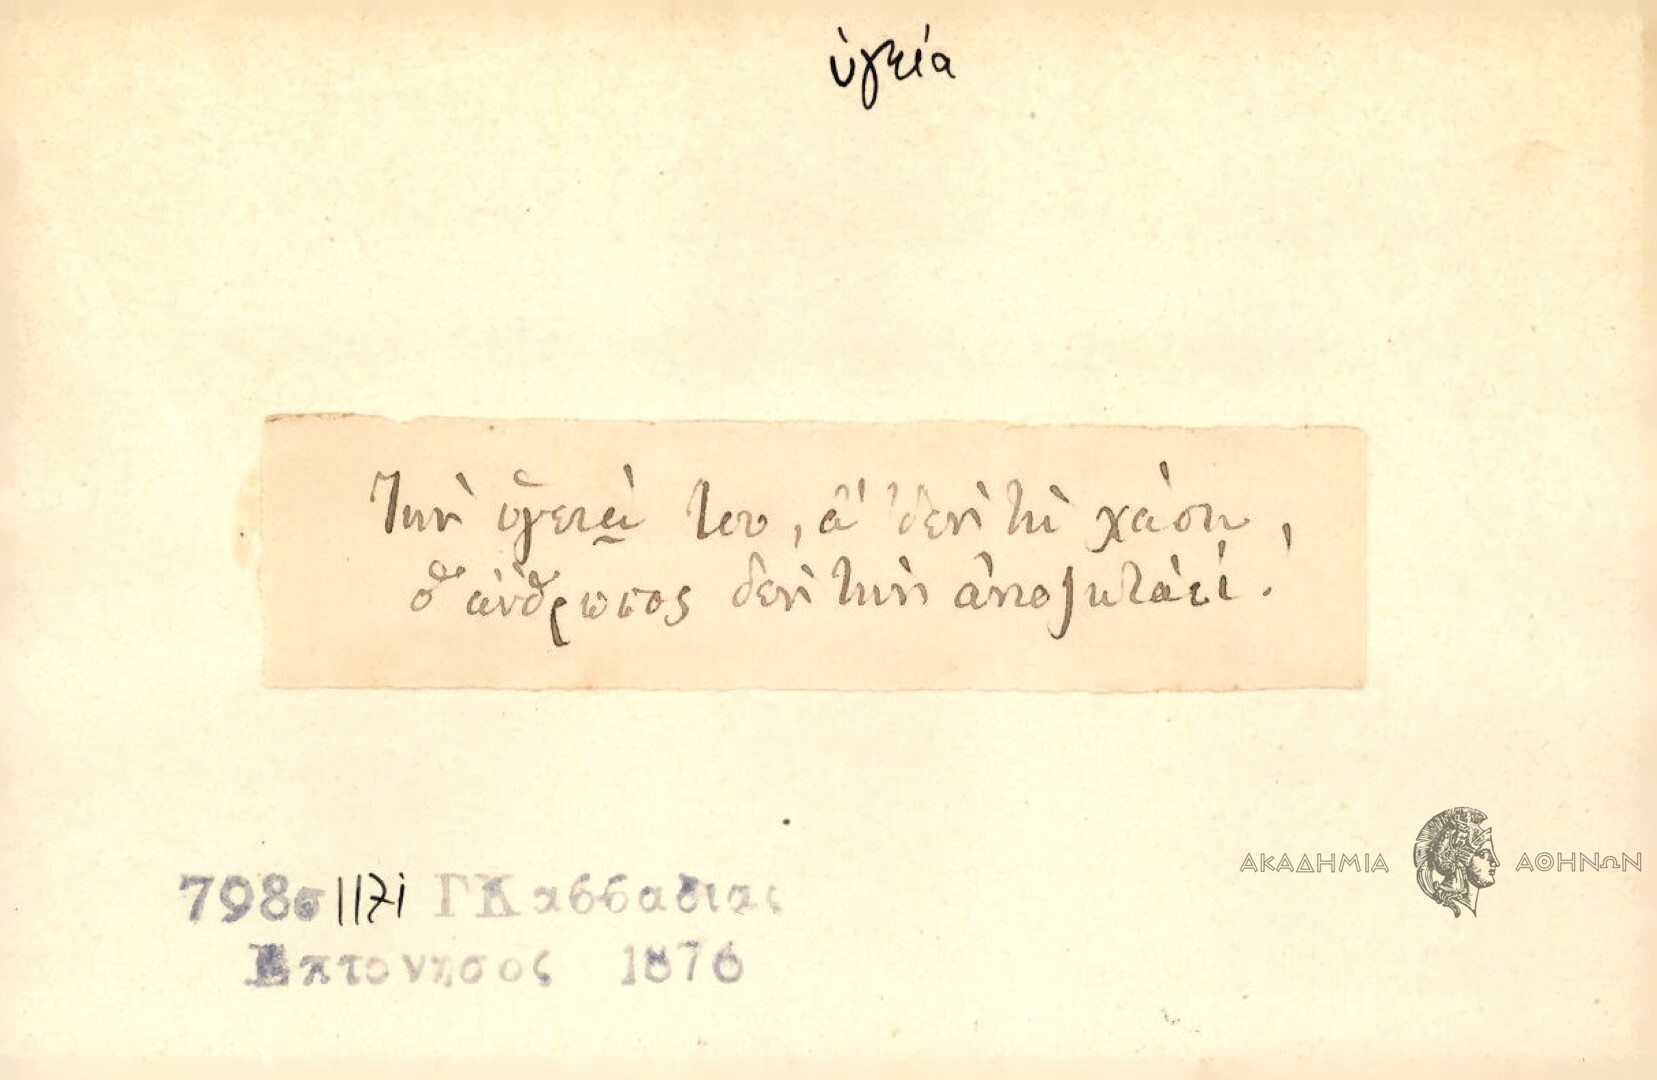 ὑγεία
Τὴν ὑγειὰ του, ἂ δὲν τὴ χάσῃ,
ὁ ἄνθρωπος δὲν τὴν ἀποζητάει.
798σ117i ΓΚασσαδιας
Επτονησος 1876
ΑΚΑΔΗΜΙΑ ΑΘΗΝΩΝ